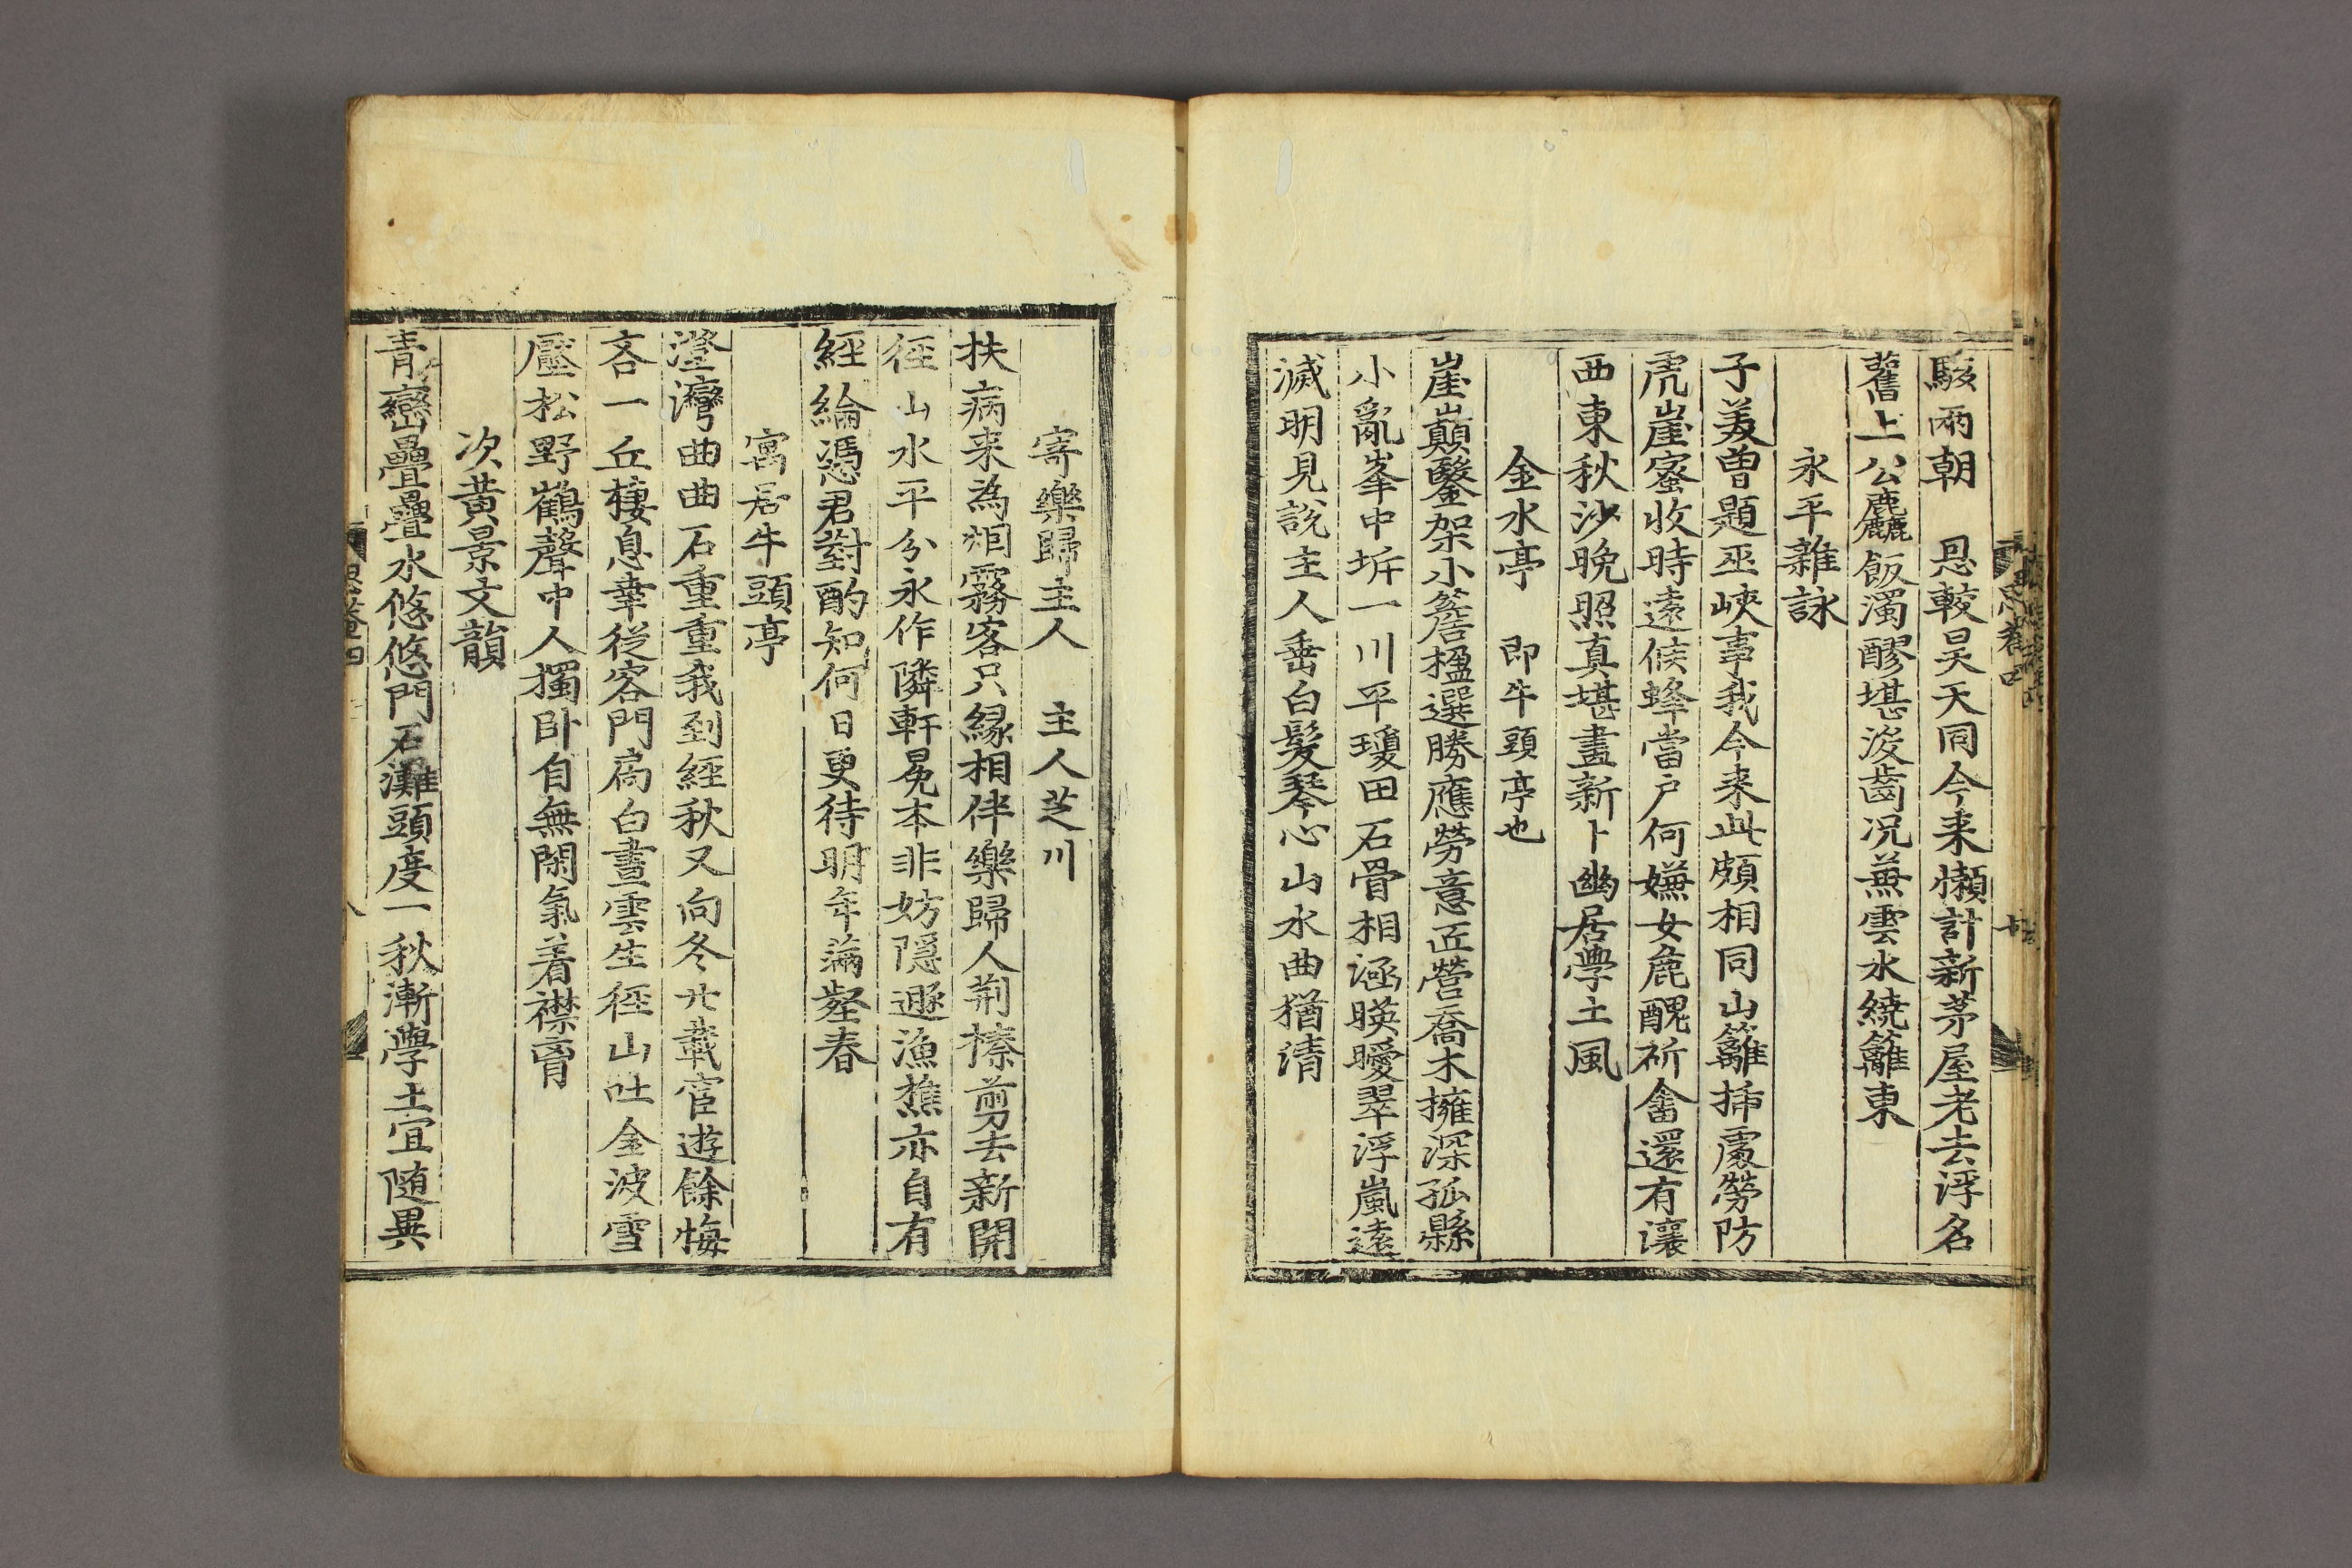 駭兩朝　恩較昊天同今来懶計新茅屋老去浮名
舊上公麤飯濁醪堪沒齒况兼雲水繞籬東
永平雜詠
子美曾題巫峽事我今来此頗相同山籬揷處勞防
虎崖蜜收時遠候蜂當戶何嫌女麁醜祈畬還有瀼
西東秋沙晩照真堪畫新卜幽居學土風
金水亭　即牛頭亭也
崖巔鑿架小簷楹選勝應勞意匠營喬木擁深孤縣
小亂峯中坼一川平瓊田石骨相涵暎曖翠浮嵐遠
滅明見說主人垂白髮琴心山水曲猶清
寄樂歸主人　主人芝川
扶病来為烟霧客只緣相伴樂歸人荊榛剪去新開
徑山水平分永作隣軒冕本非妨隱遯漁樵亦自有
經綸憑君對酌知何日更待明年滿壑春
寓居牛頭亭
澄灣曲曲石重重我到經秋又向冬卄載宦遊餘悔
吝一丘棲息幸從容門扃白晝雲生徑山吐金波雪
壓松野鶴聲中人獨卧自無閑氣着襟胷
次黃景文韻
青巒疊疊水悠悠門石灘頭度一秋漸學土宜随異